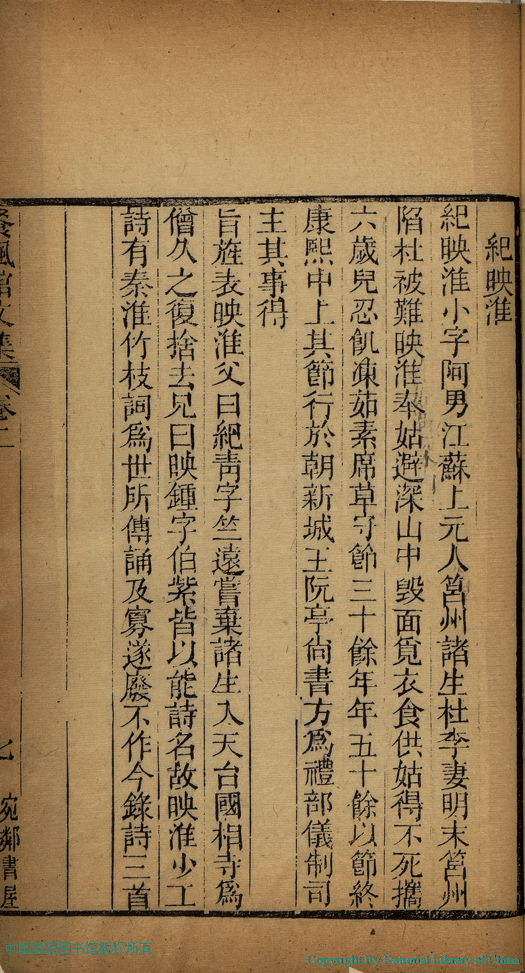 紀映淮
紀映淮小字阿男江蘇上元人筥州諸生杜李妻明末筥州
陷杜被難映淮奉姑避深山中毀面覓衣食供姑得不死攜
六歲兒忍飢凍茹素席草守節三十餘年年五十餘以節終
康熙中上其節行於朝新城王阮亭尙書方爲禮部儀制司
主其事得
旨旌表映淮父曰紀靑字竺遠嘗棄諸生入天台國相寺爲
僧久之復捨去兄曰映鍾字伯紫皆以能詩名故映淮少工
詩有秦淮竹枝詞爲世所傳誦及寡遂廢不作今錄詩三首
餐楓館文集 卷二
七
宛鄰書屋
中国国家图书馆版权所有
Copyright By National Library of China